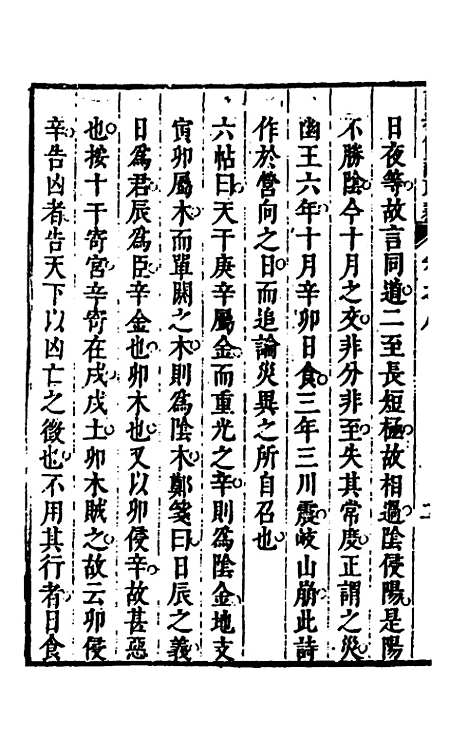 日夜等故言同道二至長短極故相過陰侵陽是陽
不勝陰今十月之交非分非至失其常度正謂之災
幽王六年十月辛卯日食三年三川震岐山崩此詩
作於營向之日而追論災異之所自召也
六帖曰天干庚辛屬金而重光之辛則爲陰金地支
寅卯屬木而單閼之木則爲陰木鄭箋曰日辰之義
日爲君辰爲臣辛金也卯木也又以卯侵辛故甚惡
也按十干寄宮辛寄在戌戌土卯木賊之故云卯侵
辛告凶者告天下以凶亡之徵也不用其行者日食